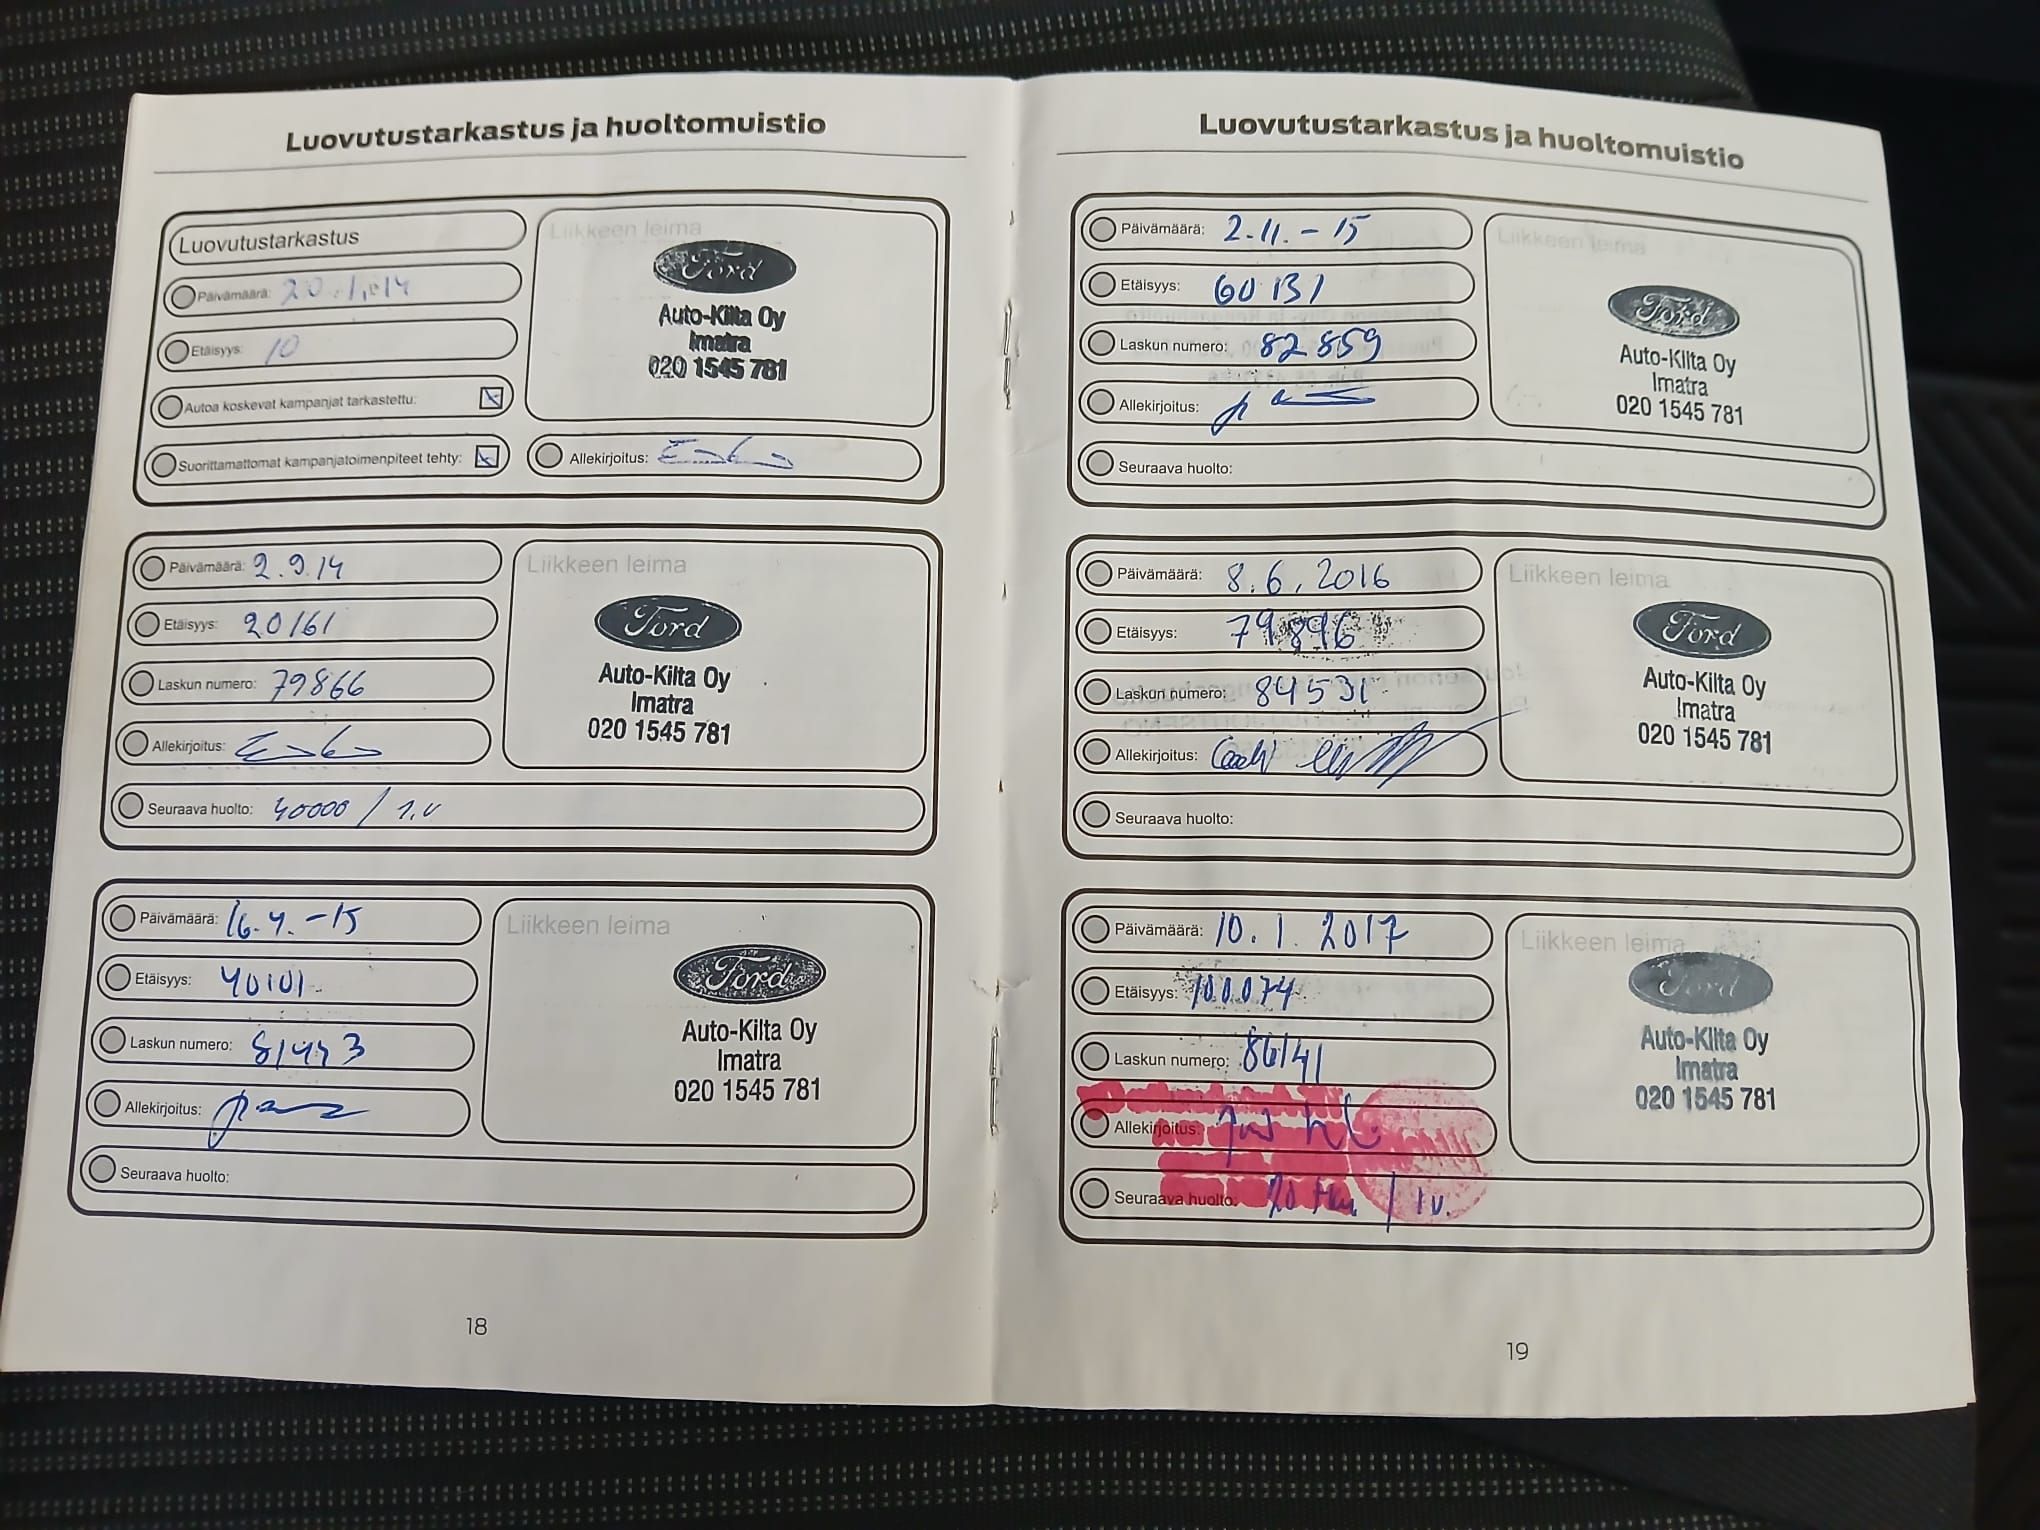 Luovutustarkastus ja huoltomuistio
Luovutustarkastus
Päivämäärä: 20.1.14
Etäisyys: 10
Autoa koskevat kampanjat tarkastettu:
Suorittamattomat kampanjatoimenpiteet tehty:
Liikkeen leima
Ford
Auto-Kilta Oy
Imatra
020 1545 781
Allekirjoitus:
Päivämäärä: 2.9.14
Etäisyys: 20161
Laskun numero: 79866
Allekirjoitus:
Seuraava huolto: 40000 / 1.v
Liikkeen leima
Ford
Auto-Kilta Oy
Imatra
020 1545 781
Päivämäärä: 16.4.-15
Etäisyys: 40101
Laskun numero: 81443
Allekirjoitus:
Seuraava huolto:
Liikkeen leima
Ford
Auto-Kilta Oy
Imatra
020 1545 781
18
Luovutustarkastus ja huoltomuistio
Päivämäärä: 2.11.-15
Etäisyys: 60131
Laskun numero: 82859
Allekirjoitus:
Seuraava huolto:
Liikkeen leima
Ford
Auto-Kilta Oy
Imatra
020 1545 781
Päivämäärä: 8.6.2016
Etäisyys: 79896
Laskun numero: 84531
Allekirjoitus:
Seuraava huolto:
Liikkeen leima
Ford
Auto-Kilta Oy
Imatra
020 1545 781
Päivämäärä: 10.1.2017
Etäisyys: 100074
Laskun numero: 86141
Allekirjoitus:
Seuraava huolto: 20 tkm / 1v.
Liikkeen leima
Ford
Auto-Kilta Oy
Imatra
020 1545 781
19